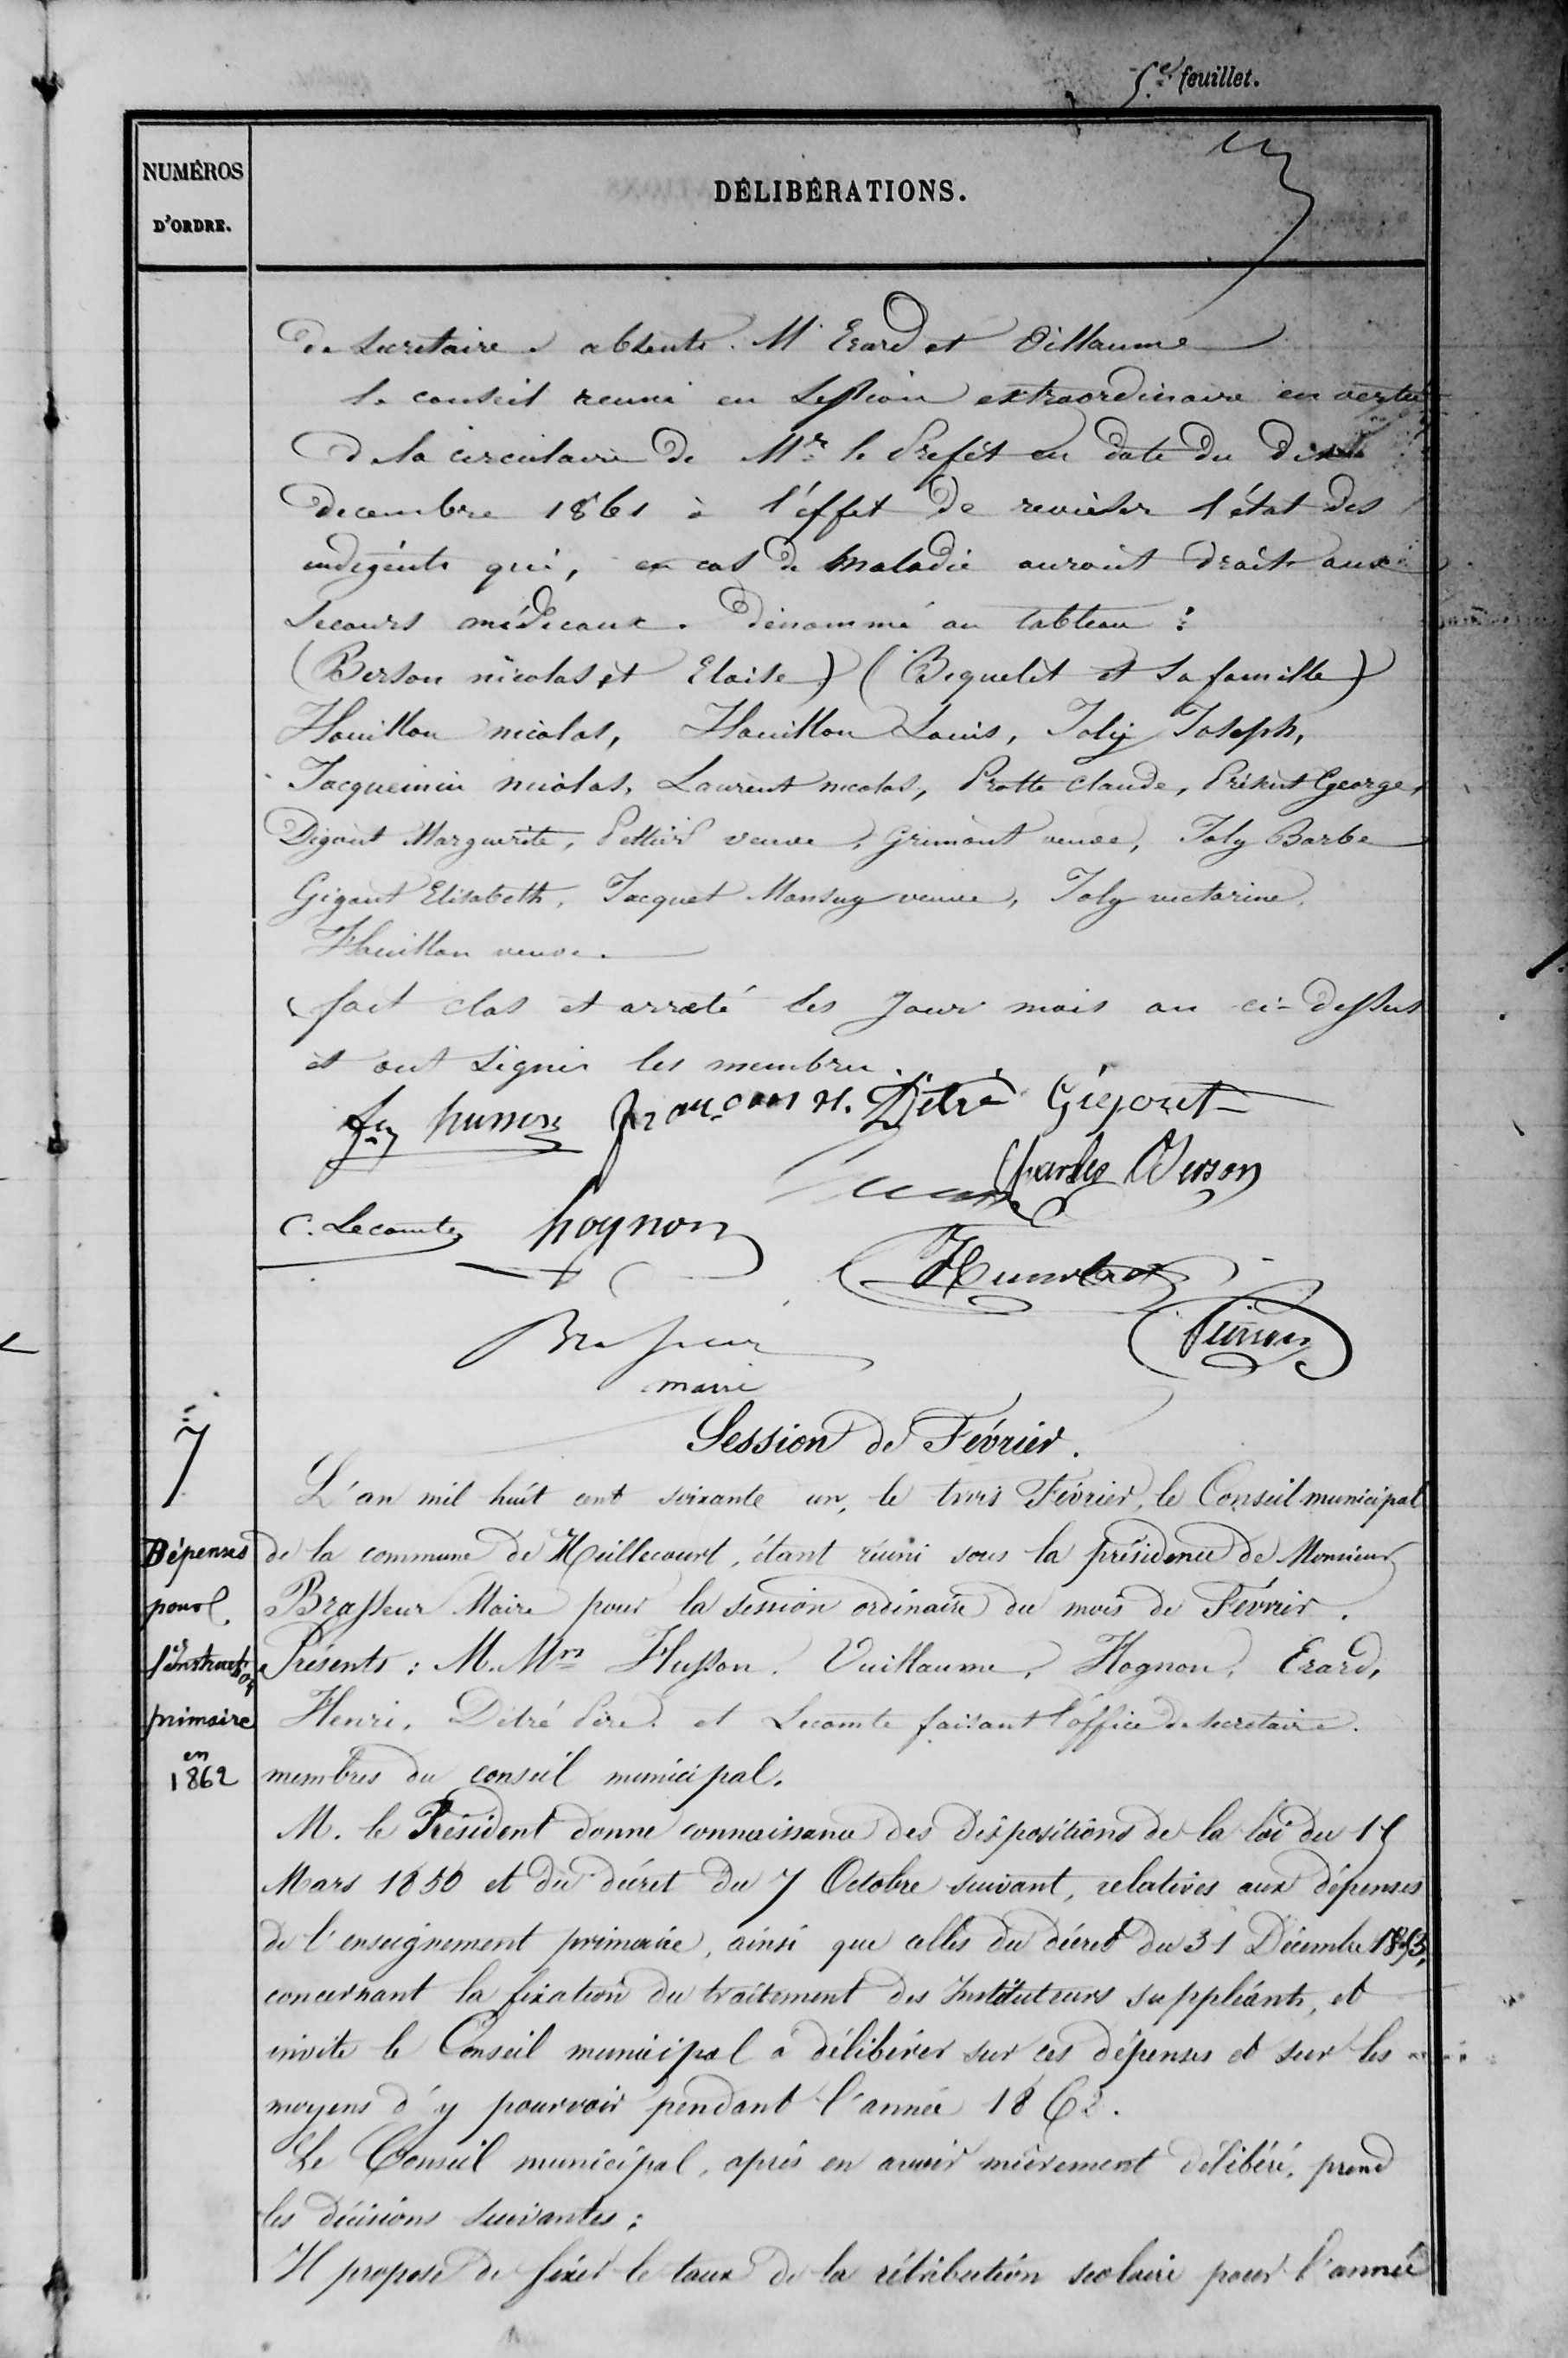 5.e feuillet.
NUMÉROS
D'ORDRE.
DÉLIBÉRATIONS.
de secretaire absents. Mr Erard et Villaume
le conseil reuni en session extraordinaire en vertu
de la circulaire de Mr. le Prefét en date du dix
decembre 1861 à l'éffet de reviéser l'état des
indigénts qui, en cas de maladie auroit droit aux
secours médicaux. dénommé au tableau :
(Berson nicolas et Eloise) (Béquelet et sa famille)
Houillon nicolas, Houillon Louis, Joly Joseph,
Jacquemin nicolas, Laurent nicolas, Protte claude, Présent George,
Digout Marguerite, veuve, Grimont veuve, Joly Barbe
Gigout Elisabeth, Jacquet Mansuy veuve, Joly victorine,
Houillon veuve.
fait clos et arreté les jour mois an ci-dessus
et ont signer les membres.
husson françois n. Détré Gigout
Charles Verson
C. Lecomte hognon
Brasseur
maire
7
Session de Février.
L'an mil huit cent soixante un, le trois Février, le Conseil municipal
Dépenses
pour
l'instruction
primaire
en
1862
de la commune de Meillecourt, étant réuni sous la présidence de Monsieur
Brasseur Maire pour la session ordinaire du mois de Février.
Présents : M. Mrs Husson, Vuillaume, Hognon, Erard,
Henri, Détré Père et Lecomte faisant l'office de secretaire.
membres du conseil municipal.
M. le Président donne connaissance des dispositions de la loi du 15
Mars 1850 et du décret du 7 Octobre suivant, relatives aux dépenses
de l'enseignement primaire, ainsi que celles du décret du 31 Décembre 1853,
concernant la fixation du traitement des Instituteurs suppléants, et
invite le Conseil municipal à délibérer sur ces dépenses et sur les
moyens d'y pourvoir pendant l'année 1862.
Le Conseil municipal, après en avoir mûrement délibéré, prend
les décisions suivantes :
Il propose de fixer le taux de la rétribution scolaire pour l'année